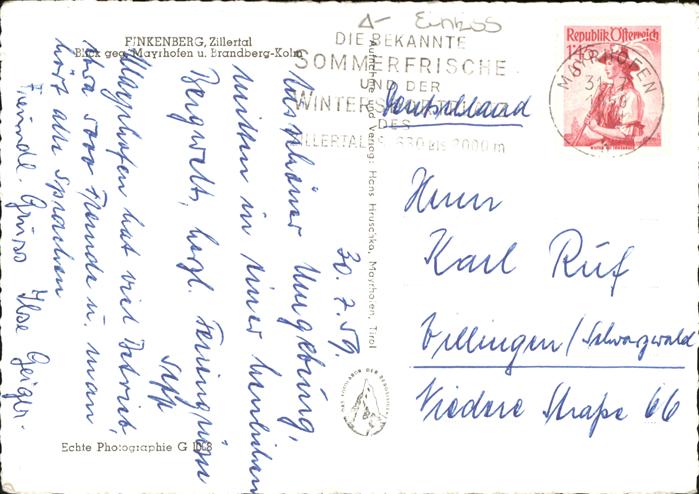 FINKENBERG, Zillertal
Blick geg. Mayrhofen u. Brandberg-Kolm
30.7.59.
Aus schöner Umgebung,
mitten in einer herrlichen
Bergwelt, herzl. Feriengrüsse
Sepp
Mayrhofen hat viel Betrieb,
etwa 5000 Fremde u. man
hört alle Sprachen
Freundl. Grüsse Ilse Geiger.
Echte Photographie G 1008
Aufnahme und Verlag: Hans Hruschka, Mayrhofen, Tirol
DIE BEKANNTE
SOMMERFRISCHE
UND DER
WINTERSPORTPLATZ
DES
ZILLERTALES 630 bis 2000 m
Republik Österreich
1'45 S
MAYRHOFEN
Deutschland
Herrn
Karl Ruf
Villingen/Schwarzwald
Niedere Straße 66